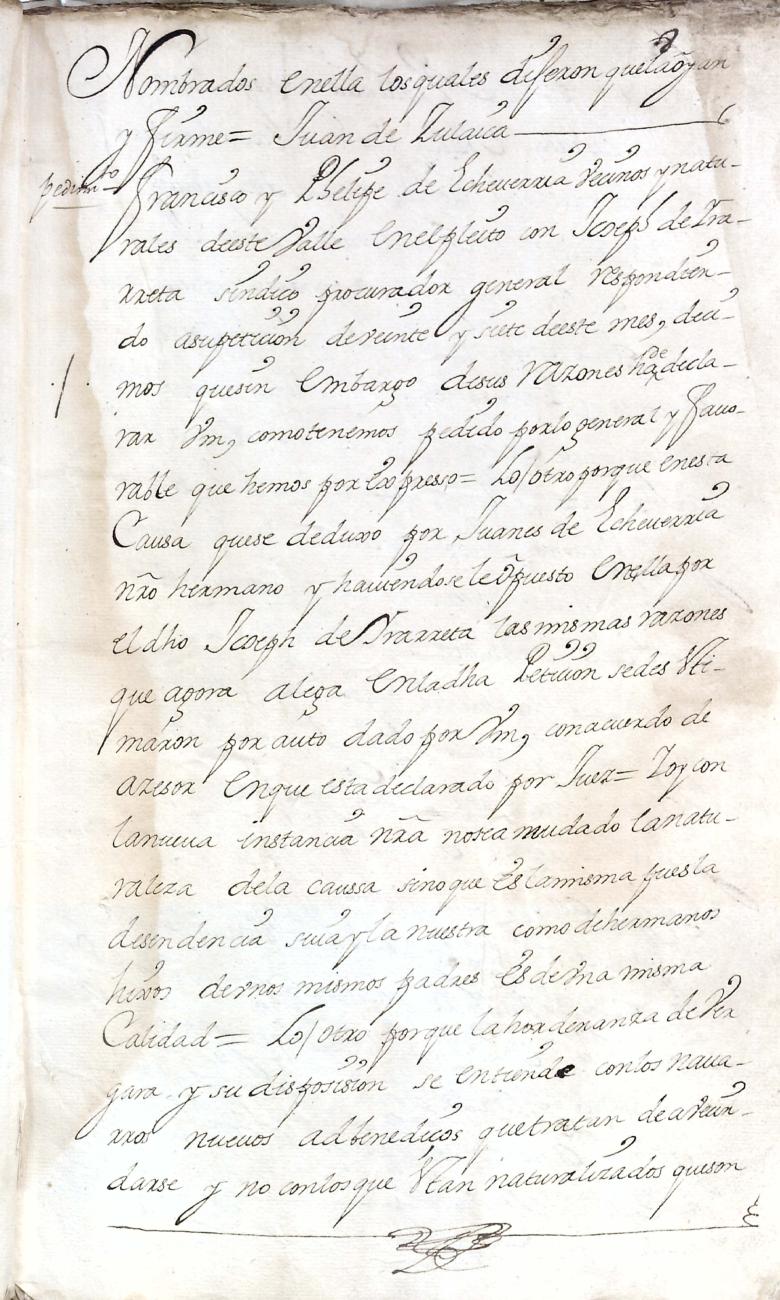 Nombrados enella los quales dixeron quela oyan
y firme= Juan de Zulaica
pedimto
Francisco y Phelipe de Echeverria vecinos y natu-
rales deeste Valle enelpleito con Joseph de Yra-
rreta sindico procurador general respondien-
do asupeticion deveinte y siete deeste mes, deci-
mos quesin embargo desus razones ha de decla-
rar Vm, comotenemos pedido porlo general y favo-
rable que hemos por expresso= Lo/otro porque enesta
Causa quese deduxo por Juanes de Echeverria
nro hermano y haviendosele opuesto enella por
eldho Joseph de Yrarreta las mismas razones
que agora alega enladha Peticion sedes Vti-
maron por auto dado por Vm, conacuerdo de
azesor enque esta declarado por Juez= Yoy con
lanueva instancia nra nosea mudado lanatu-
raleza dela caussa sinoque es lamisma puesla
desendencia suia y la nuestra como dehermanos
hixos deunos mismos padres es de vna misma
Calidad= Lo/otro porque lahordenanza de Ver
gara y su disposision se entiende conlos nava-
rros nuevos adbenedicos quetratan de avecin-
darse y no conlosque Vtan naturalizados queson